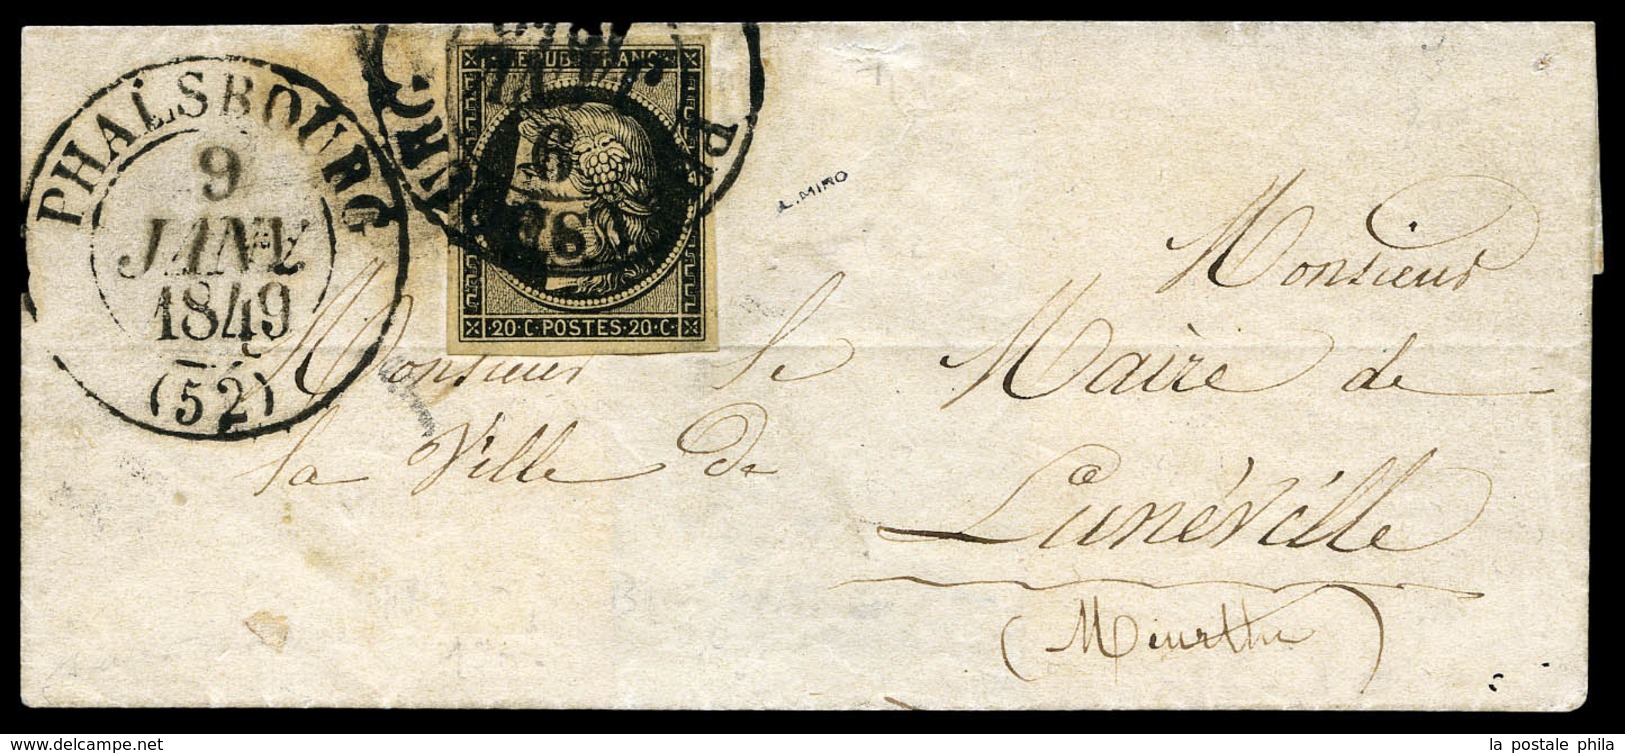 PHALSBOURG
9
JANV
1849
(52)
REPUB. FRANC
20·C·POSTES·20·C·
L. MIRO
Monsieur
Monsieur le Maire de
la Ville de Lunéville
(Meurthe)
www.delcampe.net
la postale phila